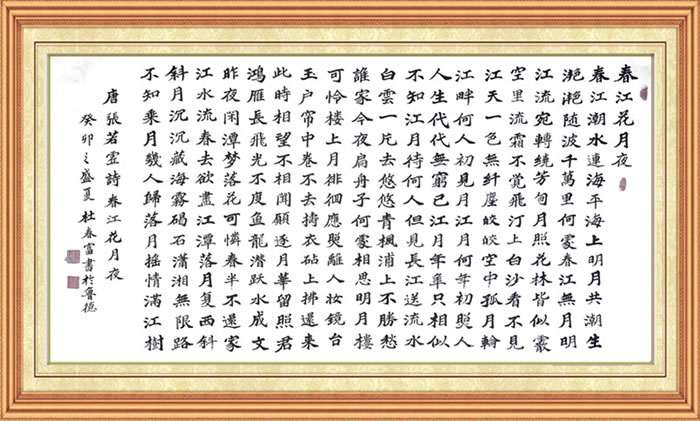 春江花月夜
春江潮水連海平海上明月共潮生
滟滟随波千萬里何處春江無月明
江流宛轉繞芳甸月照花林皆似霰
空里流霜不覺飛汀上白沙看不見
江天一色無纤塵皎皎空中孤月輪
江畔何人初見月江月何年初照人
人生代代無窮已江月年年只相似
不知江月待何人但見長江送流水
白雲一片去悠悠青楓浦上不勝愁
誰家今夜扁舟子何處相思明月樓
可怜楼上月徘徊應照離人妆鏡台
玉户帘中卷不去擣衣砧上拂還来
此時相望不相聞願逐月華留照君
鴻雁長飛光不度鱼龍潜跃水成文
昨夜闲潭梦落花可憐春半不還家
江水流春去欲盡江潭落月复西斜
斜月沉沉藏海霧碣石瀟湘無限路
不知乘月幾人歸落月摇情满江樹
唐張若虚詩春江花月夜
癸卯之盛夏杜春富書於鲁德